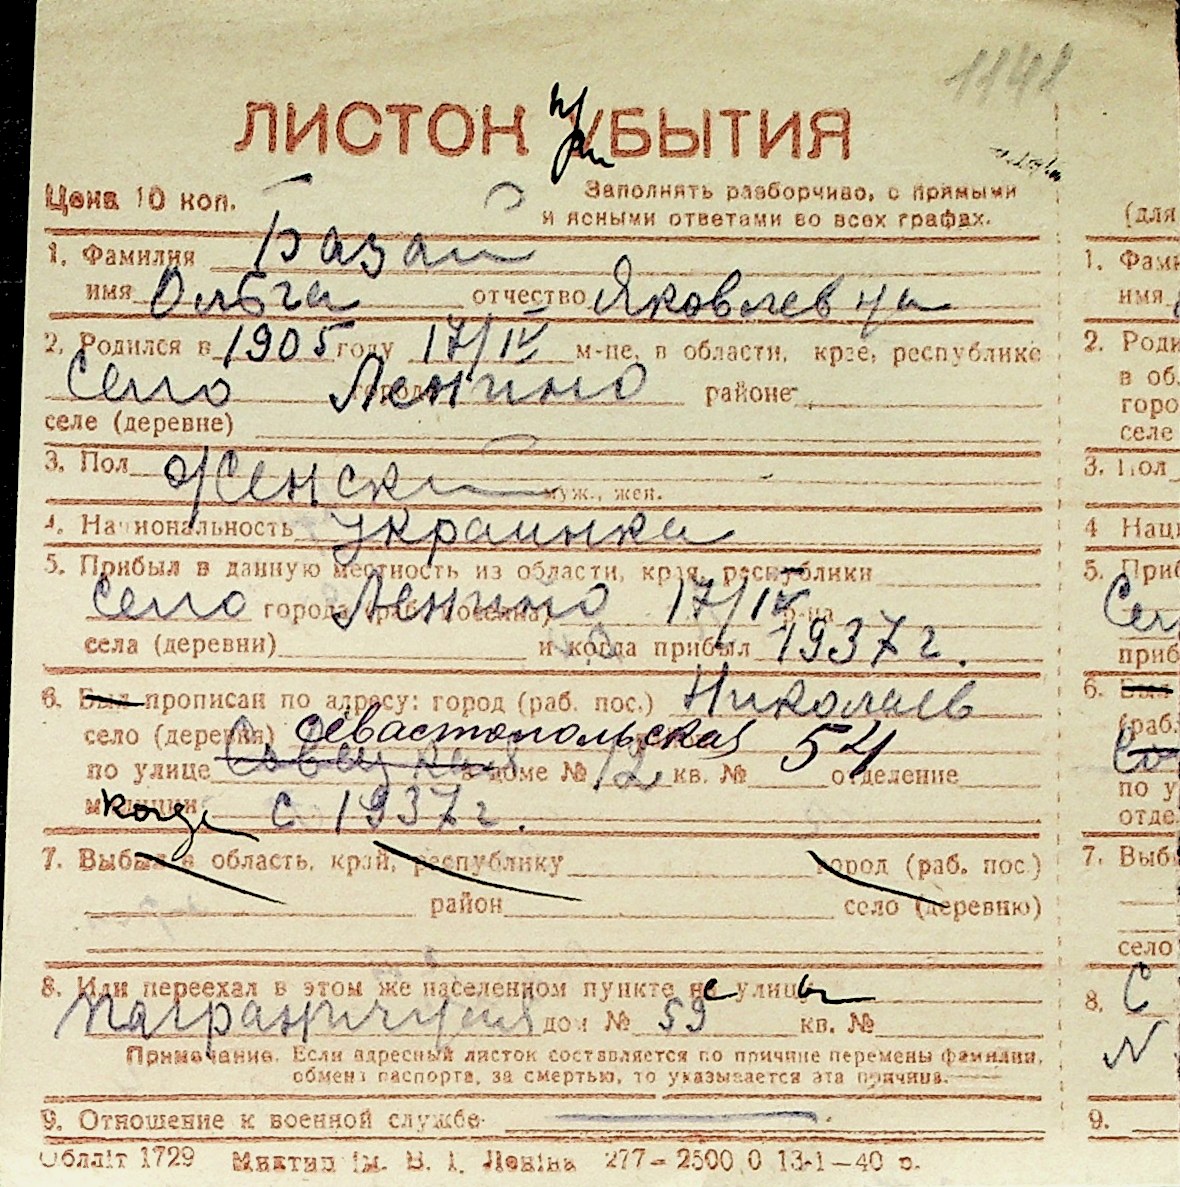 1141
ЛИСТОК УБЫТИЯ
при
Цена 10 коп. Заполнять разборчиво, с прямыми
и ясными ответами во всех графах.
(для
1. Фамилия Базан
имя Ольга отчество Яковлевна
2. Родился в 1905 году 17/IV м-це, в области, крае, республике
Село города Ленино районе
селе (деревне)
3. Пол Женский
муж., жен.
4. Национальность украинка
5. Прибыл в данную местность из области, края, республики
Село города (раб. поселка) Ленино 17/IV р-на
села (деревни) и когда прибыл 1937 г.
6. Был прописан по адресу: город (раб. пос.) Николаев
село (деревня) Севастопольская 54
по улице Советская в доме № 12 кв. № отделение
милиции когда с 1937 г.
7. Выбыл в область, край, республику город (раб. пос.)
район село (деревню)
8. Или переехал в этом же населенном пункте с улицы
Пограничная дом № 59 кв. №
Примечание. Если адресный листок составляется по причине перемены фамилии,
обмена паспорта, за смертью, то указывается эта причина.
9. Отношение к военной службе
Облліт 1729 Миктип ім. В. І. Леніна 277-2500,0 13-1-40 р.
1. Фами
имя
2. Роди
в об
горо
селе
3. Пол
4 Наци
5. Приб
Сел
приб
6. Был
(раб.
по у
отде
7. Выбы
село
8. С
9.